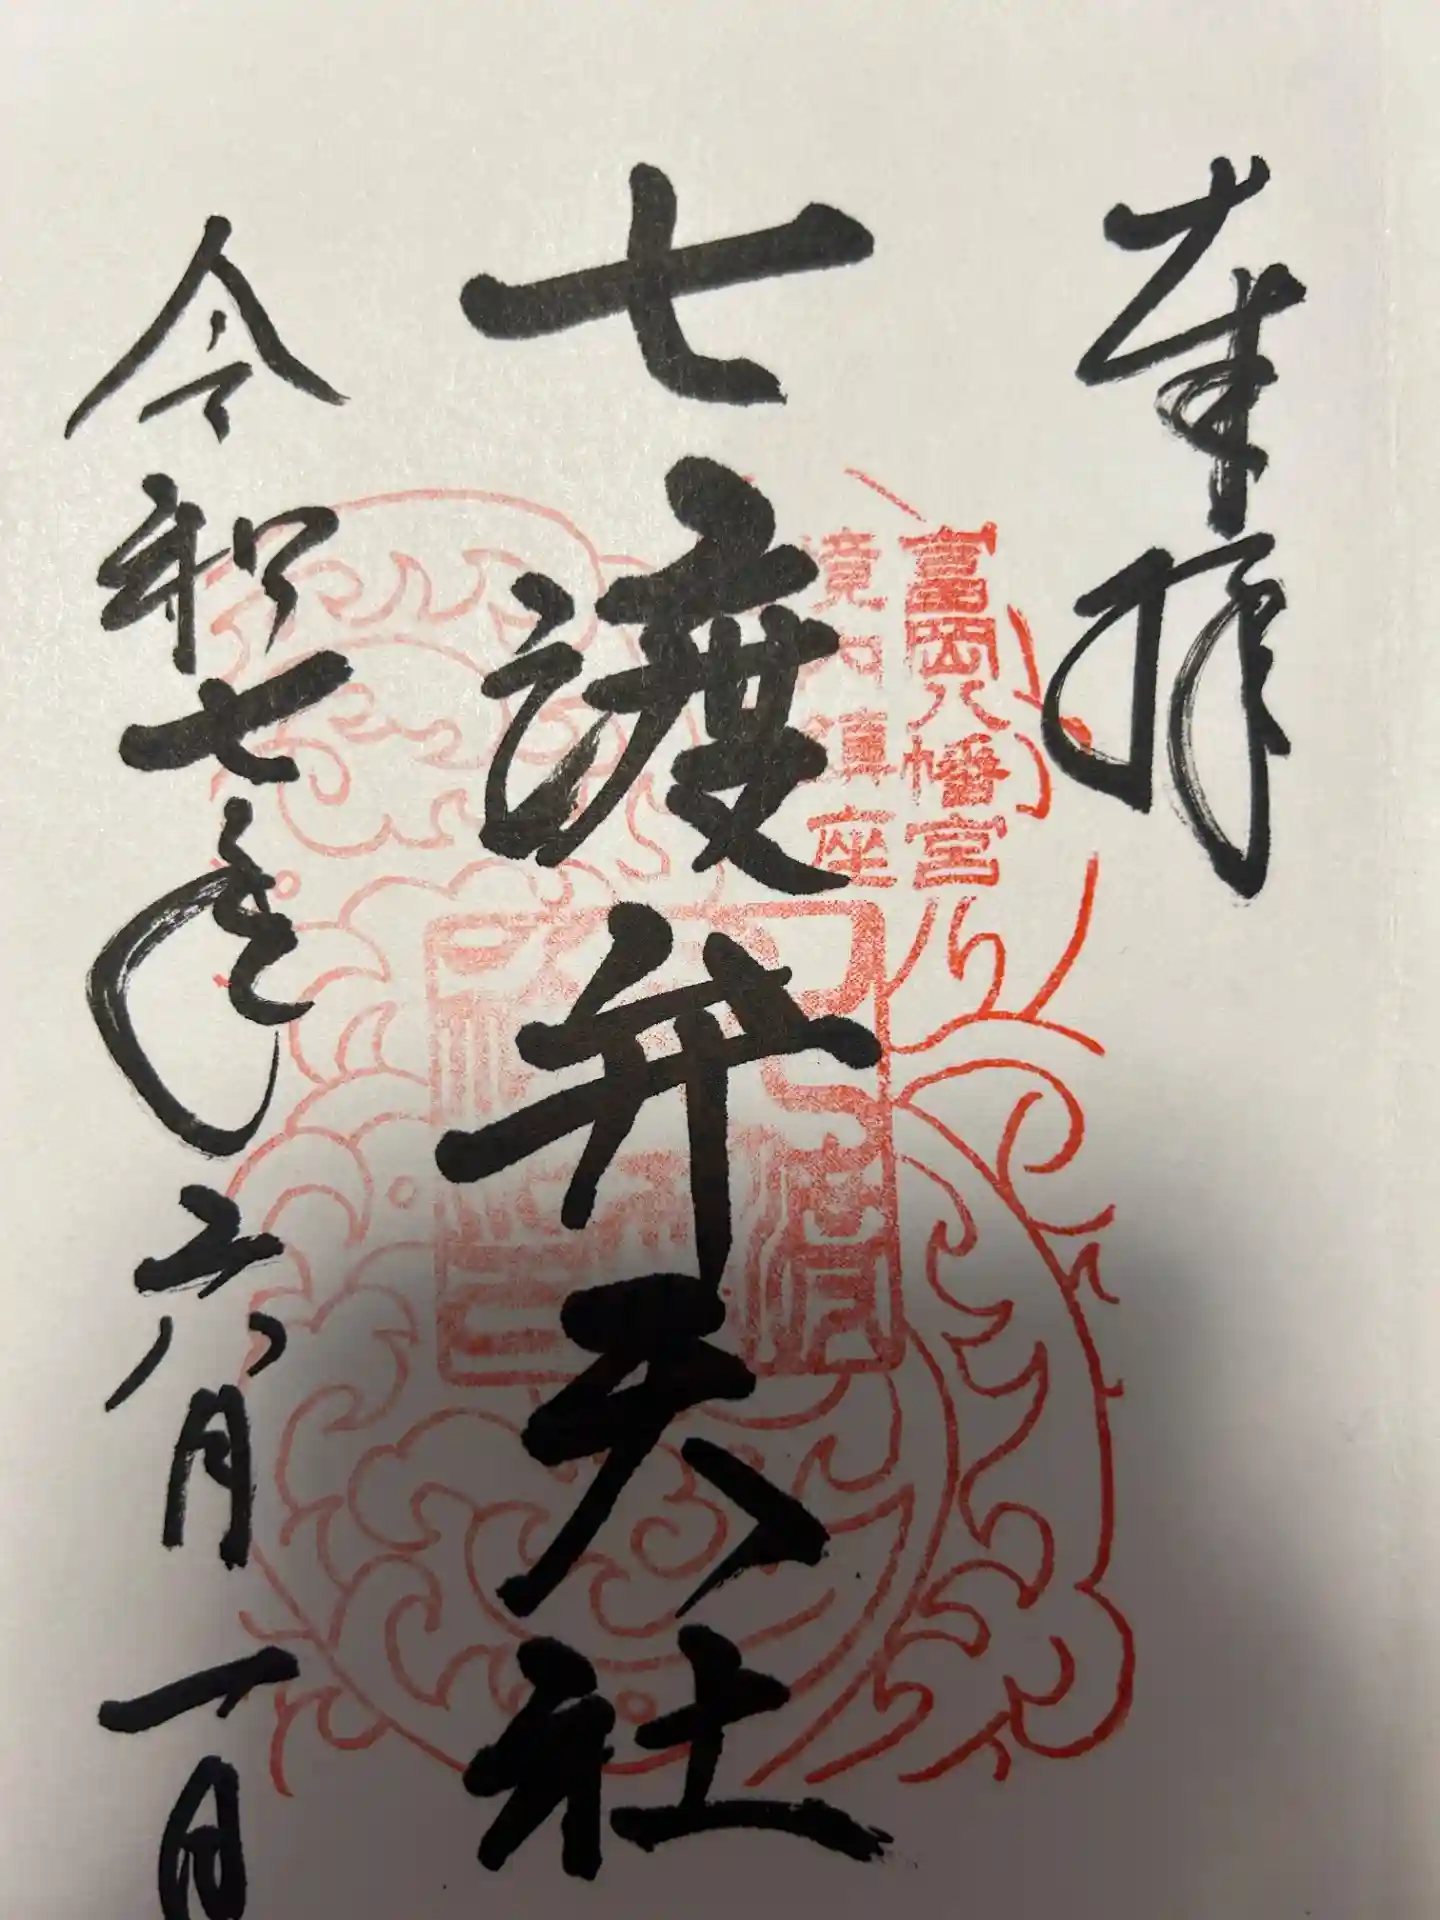 奉拝
富岡八幡宮
境内鎮座
七渡弁天社
令和七年六月一日